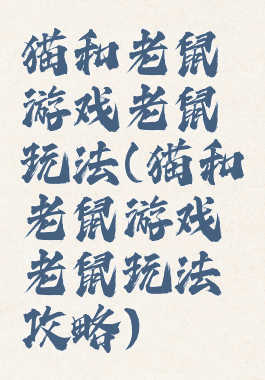 猫和老鼠
游戏老鼠
玩法(猫和
老鼠游戏
老鼠玩法
攻略)